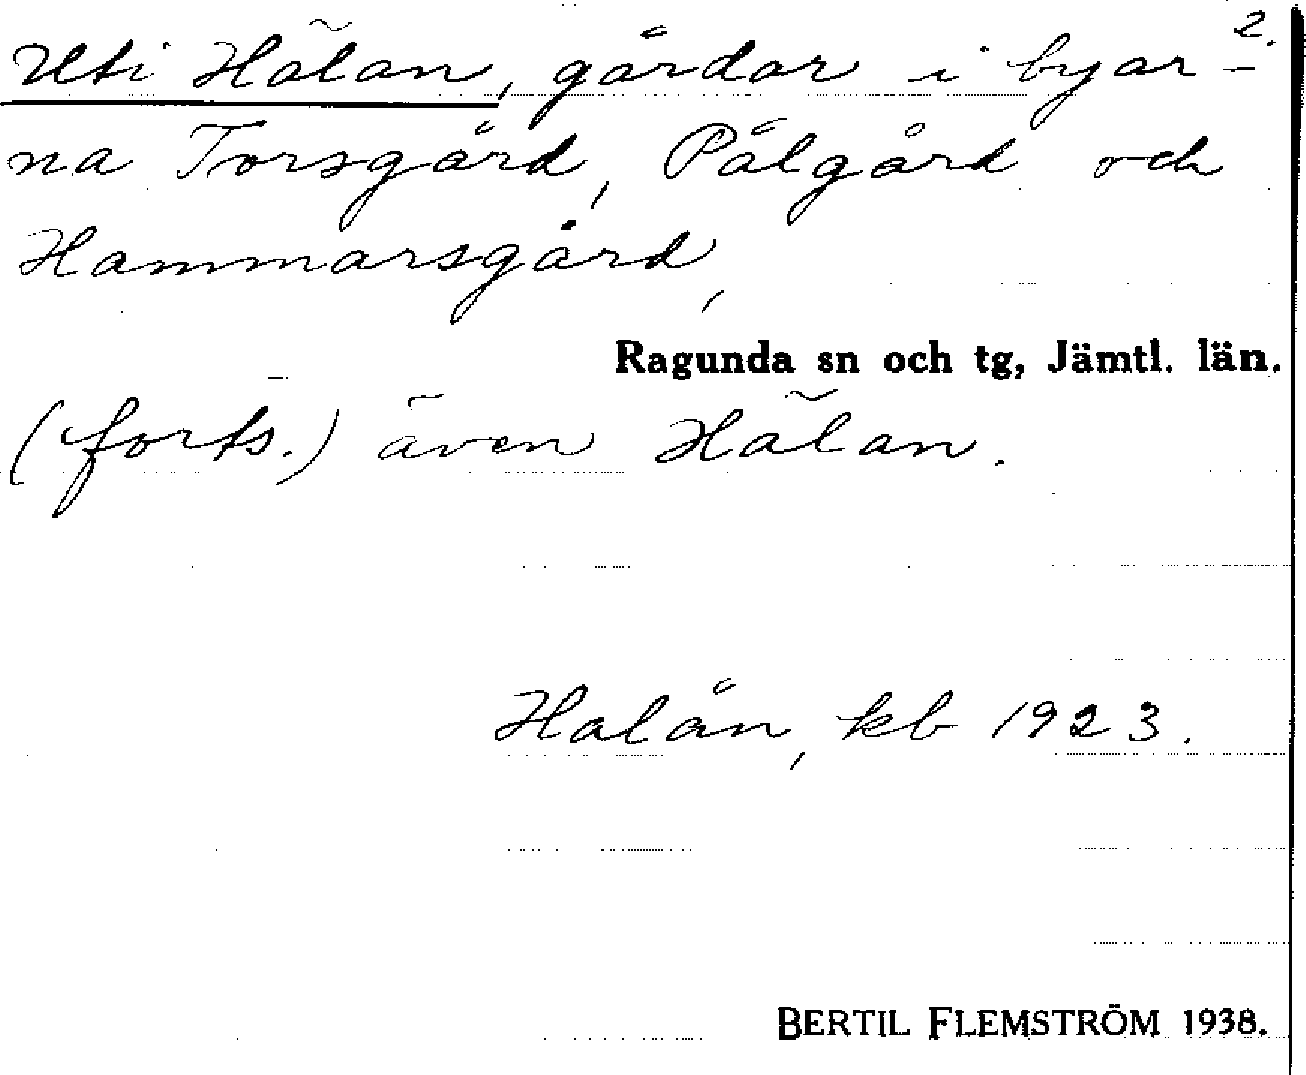 2.
Uti Hälan, gårdar i byar-
na Torsgård, Pålgård och
Hammarsgård,
Ragunda sn och tg, Jämtl. län.
(forts.) även Hälan.
Halån, kb 1923.
BERTIL FLEMSTRÖM 1938.